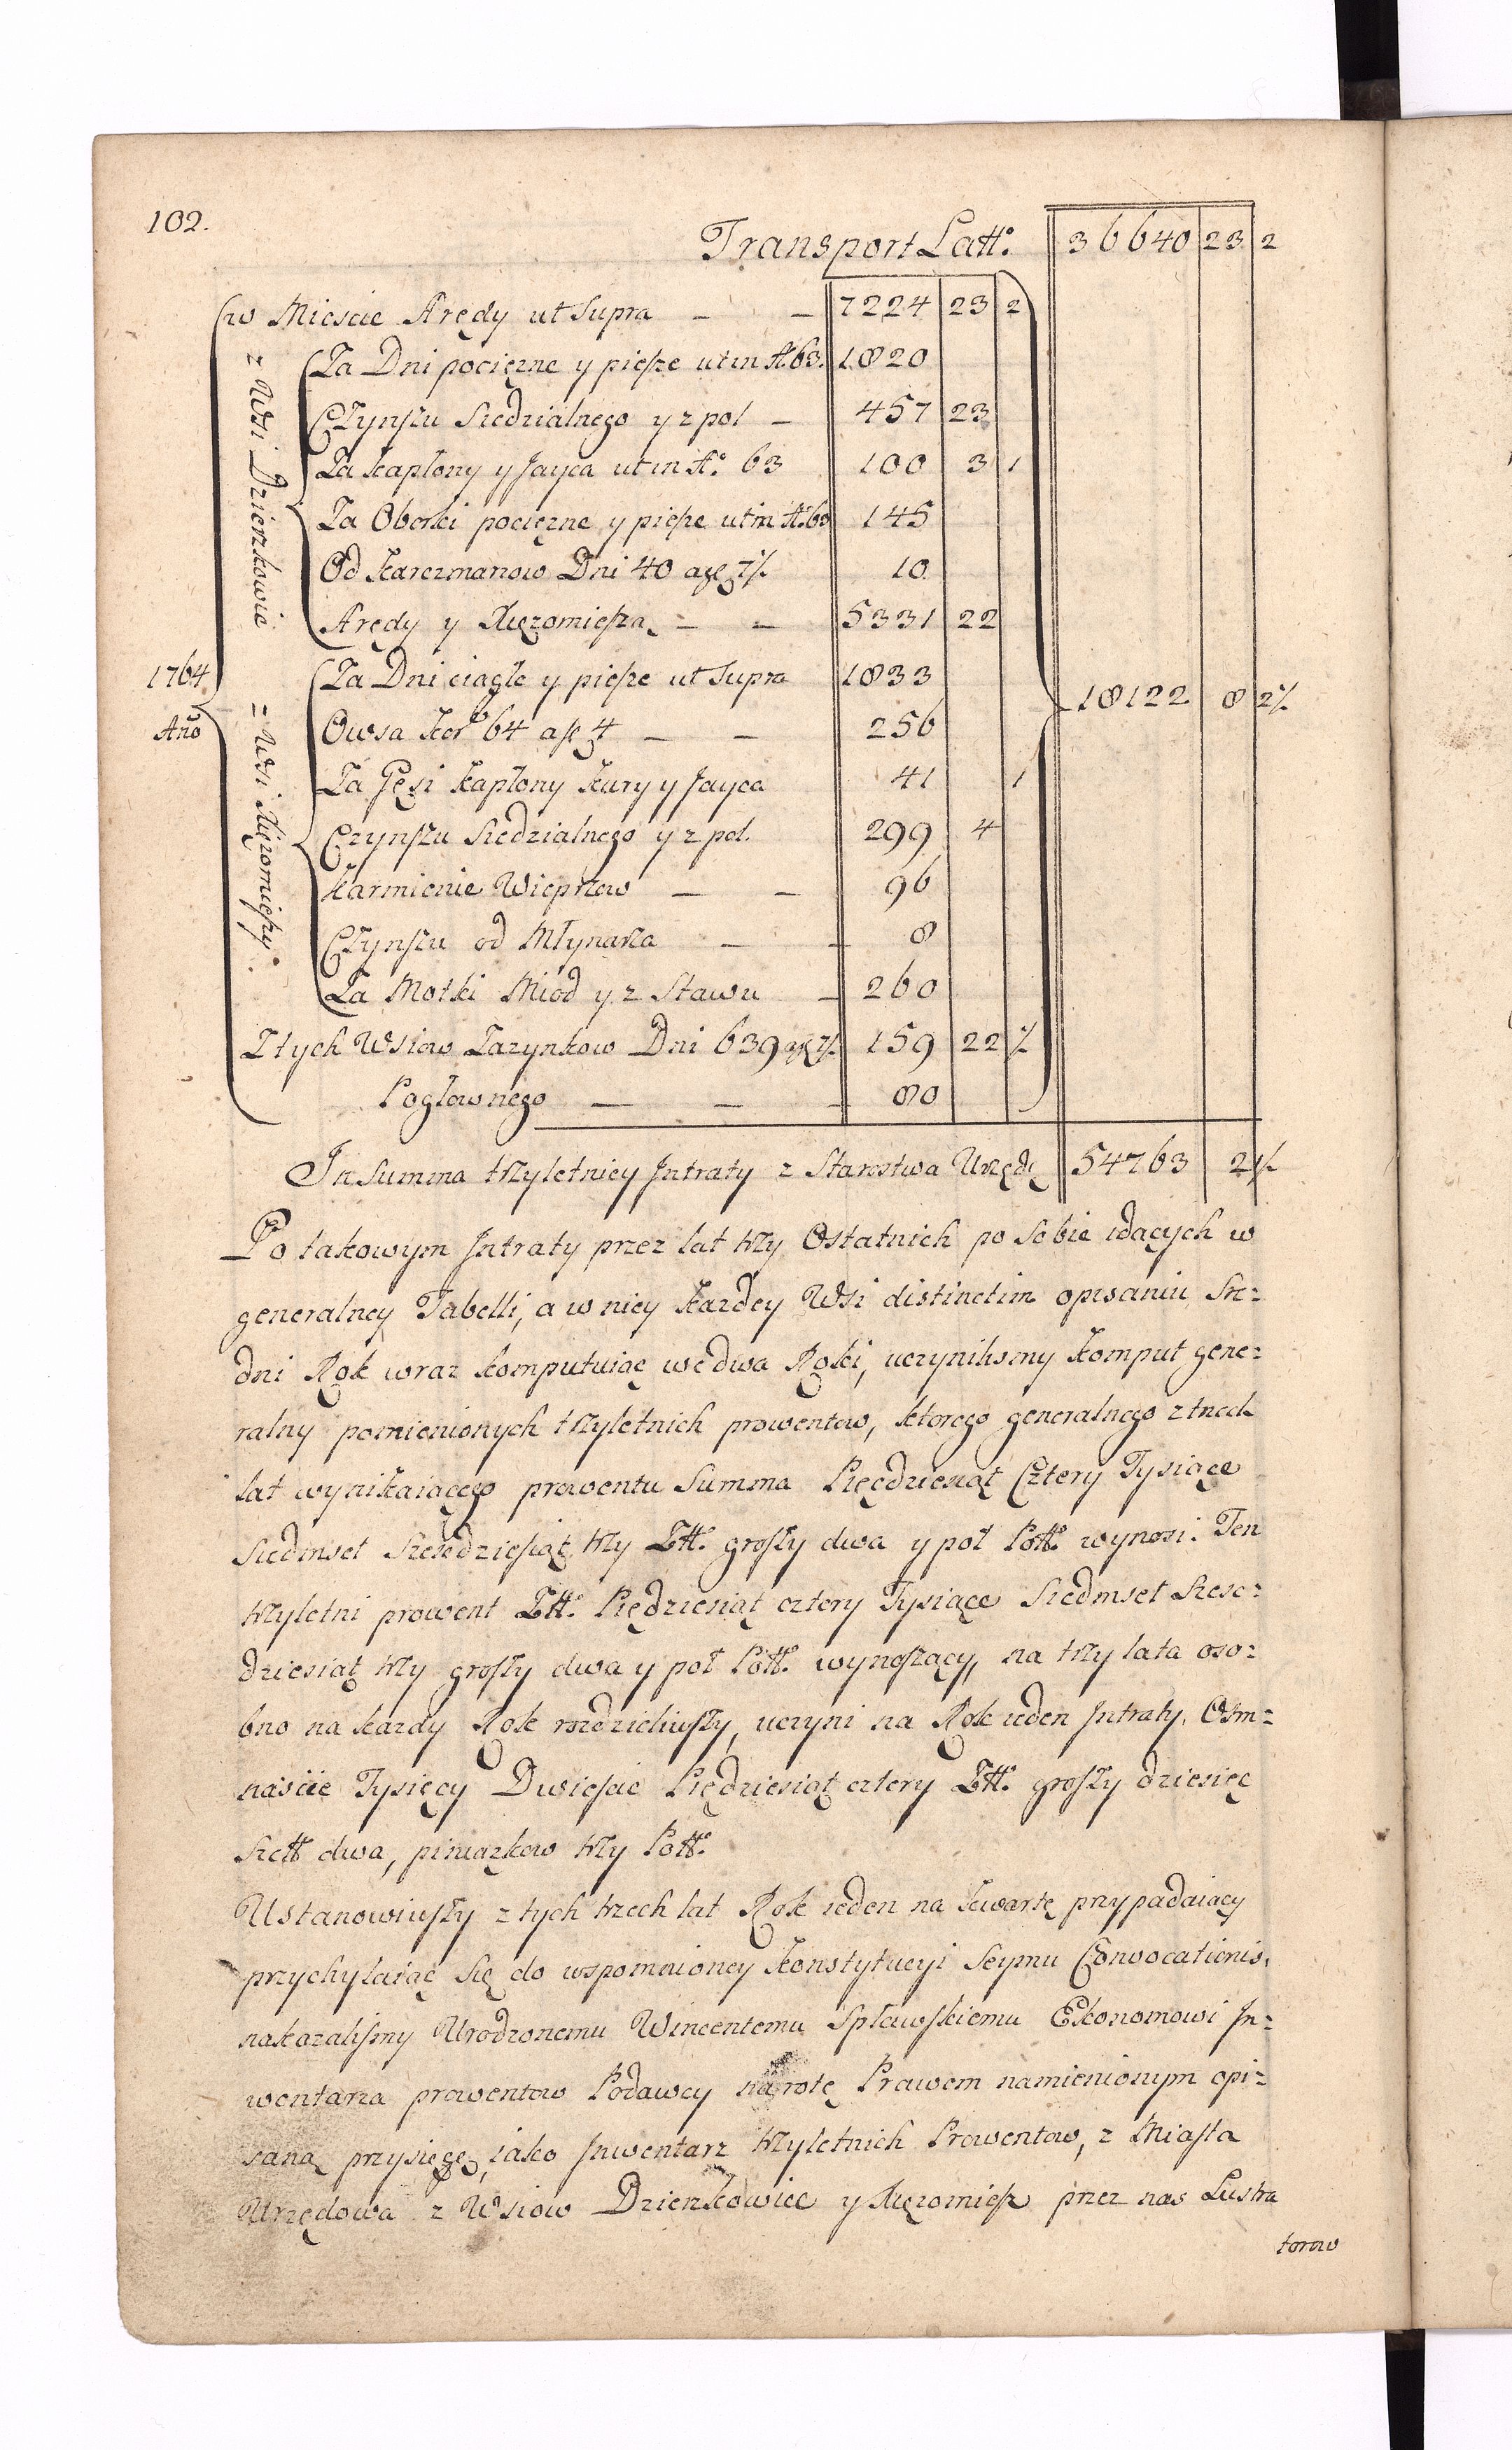 102.
Transport Latt. 36640 23 2
w Miescie Arędy ut supra — — 7224 23 2
Za Dni pociężne y piesze ut in Aō 63. 1820
Czynszu siedzialnego y z pol — 457 23
Za kapłony y Jayca ut in Aō 63 100 3 1
Za Oborki pociężne y piesze ut in Aō 63 145
Od karczmarzow Dni 40 a gr 7½ 10
Arędy y Xięzomieszą — — 5331 22
z Wsi Dzierzkowic
1764 Año
Za Dni ciągłe y piesze ut supra 1833
18122 8 2½
Owsa kor. 64 a fl 4 — — 256
Za Gęsi kapłony kury y Jayca 41 1
Czynszu siedzialnego y z pol. 299 4
karmienie Wieprzow — — 96
Czynszu od Młynarza — — 8
Za Motki Miod y z stawu — 260
z Wsi Xięzomieszy.
Z tych Wsiow Zazynkow Dni 639 a gr 7½ 159 22 ½
Pogłownego — — — 80
In Summa trzyletniey Intraty z Starostwa Urzędo 54763 2½
Po takowym Intraty przez lat trzy Ostatnich po sobie idących w
generalney Tabelli, a w niey każdey Wsi distinctim opisaniu Sre-
dni Rok wraz komputuiąc we dwa Roki, uczynilismy komput gene-
ralny pomienionych trzyletnich prowentow, ktorego generalnego z trzech
lat wynikaiącego prowentu Summa Pięcdziesiąt Cztery Tysiące
siedmset szescdziesiąt trzy Ztt. groszy dwa y poł Pott. wynosi. Ten
trzyletni prowent Ztt. Pięcdziesiąt cztery Tysiące Siedmset Szesc-
dziesiąt trzy groszy dwa y poł Pott. wynoszący, na trzy lata oso-
bno na kazdy Rok rozdzieliwszy, uczyni na Rok ieden Intraty. Osm-
nascie Tysięcy Dwiescie Pięcdziesiąt cztery Ztt. groszy dziesięc
szett dwa, pieniążkow trzy Pott.
Ustanowiwszy z tych trzech lat Rok ieden na kwartę przypadaiący
przychylaiąc się do wspomnioney konstytucyi Seymu Convocationis,
nakazalismy Urodzonemu Wincentemu Spławskiemu Ekonomowi In-
wentarza prowentow Podawcy na rotę Prawem namienionym opi-
saną przysięgę, iako Inwentarz trzyletnich Prowentow, z Miasta
Urzędowa z Wsiow Dzierzkowic y Xięzomiesz przez nas Lustra
torow